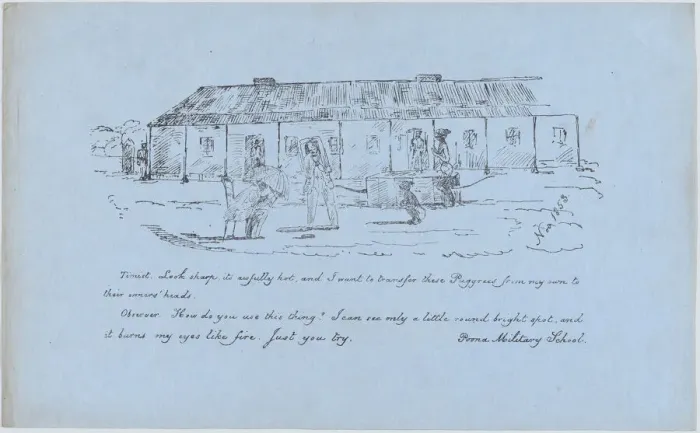 Nov 1858
Timist. Look sharp, it's awfully hot, and I want to transfer these Puggrees from my own to
their owners' heads.
Observer. How do you use this thing? I can see only a little round bright spot, and
it burns my eyes like fire. Just you try. Poona Military School.